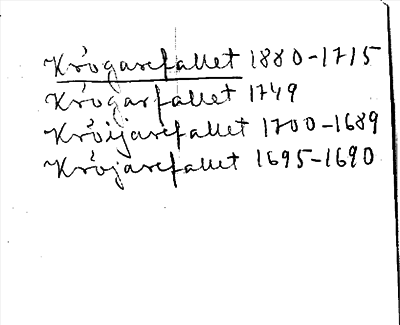 Krögarefallet 1880-1715
Krögarfallet 1749
Kröijarefallet 1700-1689
Kröjarefallet 1695-1690